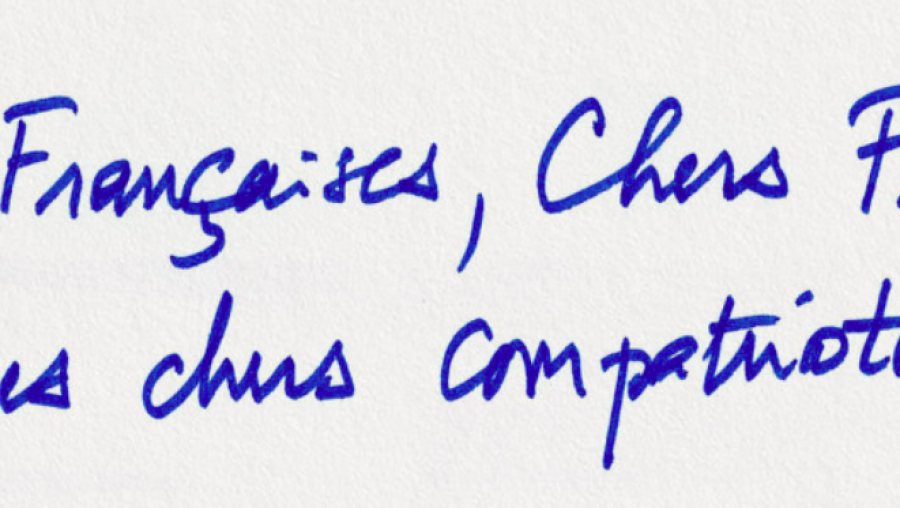 Françaises, Chers F
es chers compatriot